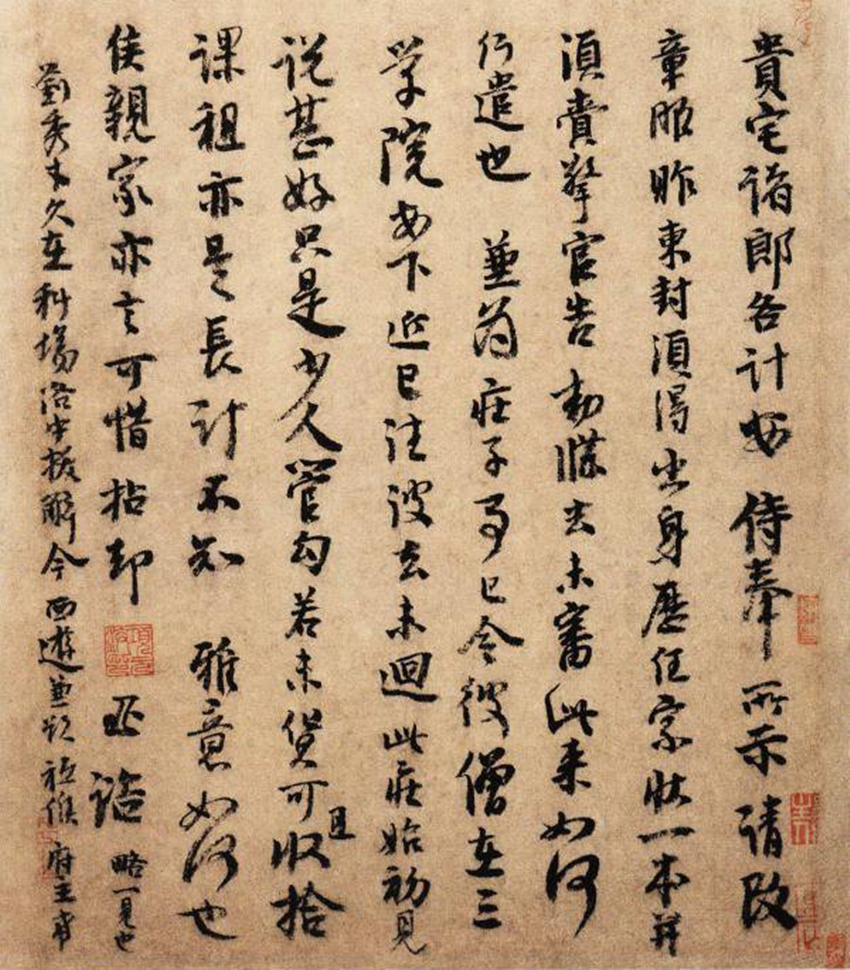 貴宅諸郎各計安 侍奉 所示請改
章服昨東封須得出身歷任家狀一本并
須賫擎官告勑牒去未審此来如何
行遣也 兼為莊子事已令彼僧在三
学院安下近已往彼去未迴此莊始初見
説甚好只是少人管勾若未貨可且收拾
課租亦是長計不知 雅意如何也
侯親家亦言可惜拈却 諮
劉秀才久在科場洛中拔解今西遊兼欲祗候 府主希
略一見也